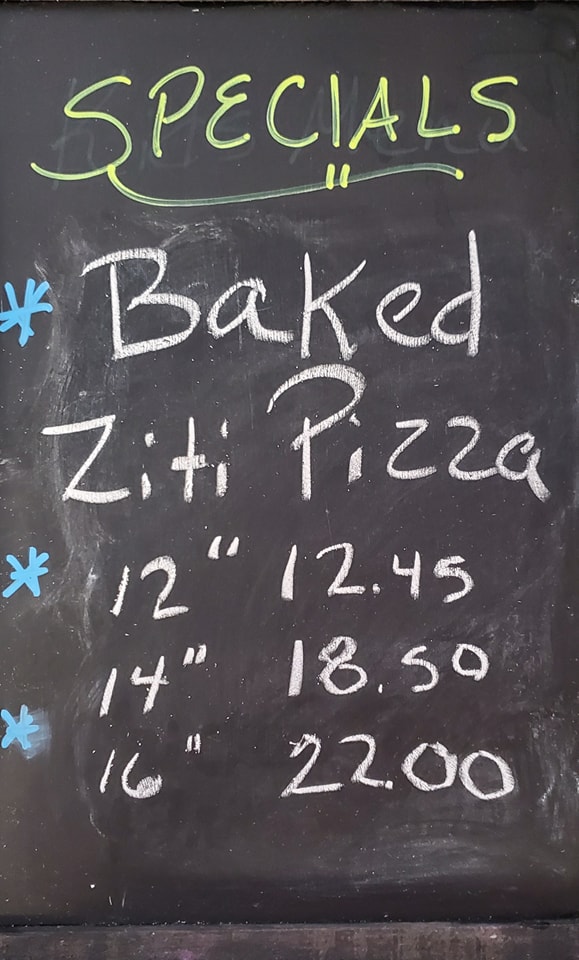 SPECIALS
* Baked
Ziti Pizza
* 12" 12.45
14" 18.50
* 16" 22.00